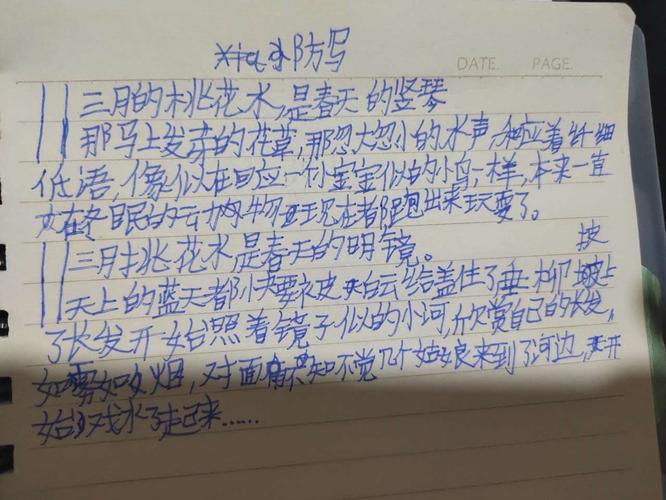 防写
DATE. PAGE.
三月的桃花水,是春天的竖琴
那马上发芽的花草,那忽大忽小的水声,和应着纤细
低语,像似在回应一个宝宝似的小鸟一样,本来一直
在冬眠的动物现在都跑出来玩耍了。
三月桃花水,是春天的明镜。 披
天上的蓝天都快要被白云给盖住了垂柳披上
了长发开始照着镜子似的小河,欣赏自己的长发,
如雾如烟,对面 不知不觉几个姑娘来到了河边,开
始戏水了起来……